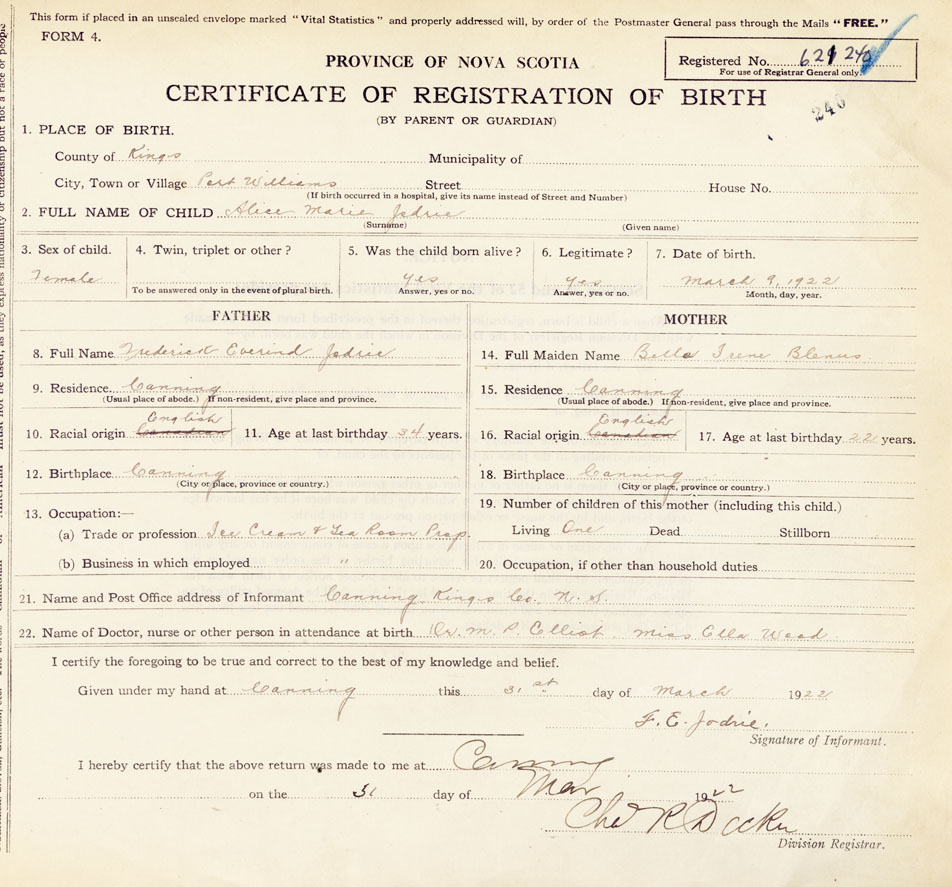 This form if placed in an unsealed envelope marked "Vital Statistics" and properly addressed will, by order of the Postmaster General pass through the Mails "FREE."
FORM 4.
Registered No. 62 240
For use of Registrar General only.
PROVINCE OF NOVA SCOTIA
CERTIFICATE OF REGISTRATION OF BIRTH
240
(BY PARENT OR GUARDIAN)
1. PLACE OF BIRTH.
County of Kings Municipality of
City, Town or Village Port Williams Street House No.
(If birth occurred in a hospital, give its name instead of Street and Number)
2. FULL NAME OF CHILD Alice Marie Jodrie
(Surname) (Given name)
3. Sex of child. 4. Twin, triplet or other? 5. Was the child born alive? 6. Legitimate? 7. Date of birth.
Female yes yes March 9, 1922
To be answered only in the event of plural birth. Answer, yes or no. Answer, yes or no. Month, day, year.
FATHER MOTHER
8. Full Name Frederick Jodrie 14. Full Maiden Name Bella Irene Blenus
9. Residence Canning 15. Residence Canning
(Usual place of abode.) If non-resident, give place and province. (Usual place of abode.) If non-resident, give place and province.
English English
10. Racial origin Canadian 11. Age at last birthday 34 years. 16. Racial origin Canadian 17. Age at last birthday 22 years.
12. Birthplace Canning 18. Birthplace Canning
(City or place, province or country.) (City or place, province or country.)
13. Occupation:— 19. Number of children of this mother (including this child.)
(a) Trade or profession Ice Cream & Tea Room Prop. Living One Dead Stillborn
(b) Business in which employed " 20. Occupation, if other than household duties
21. Name and Post Office address of Informant Canning Kings Co. N. S.
22. Name of Doctor, nurse or other person in attendance at birth Dr. M. P. Elliot Miss Ella Wood
I certify the foregoing to be true and correct to the best of my knowledge and belief.
Given under my hand at Canning this 31st day of March 1922
F. E. Jodrie.
Signature of Informant.
I hereby certify that the above return was made to me at Canning
on the 31 day of Mar 1922
R
Division Registrar.